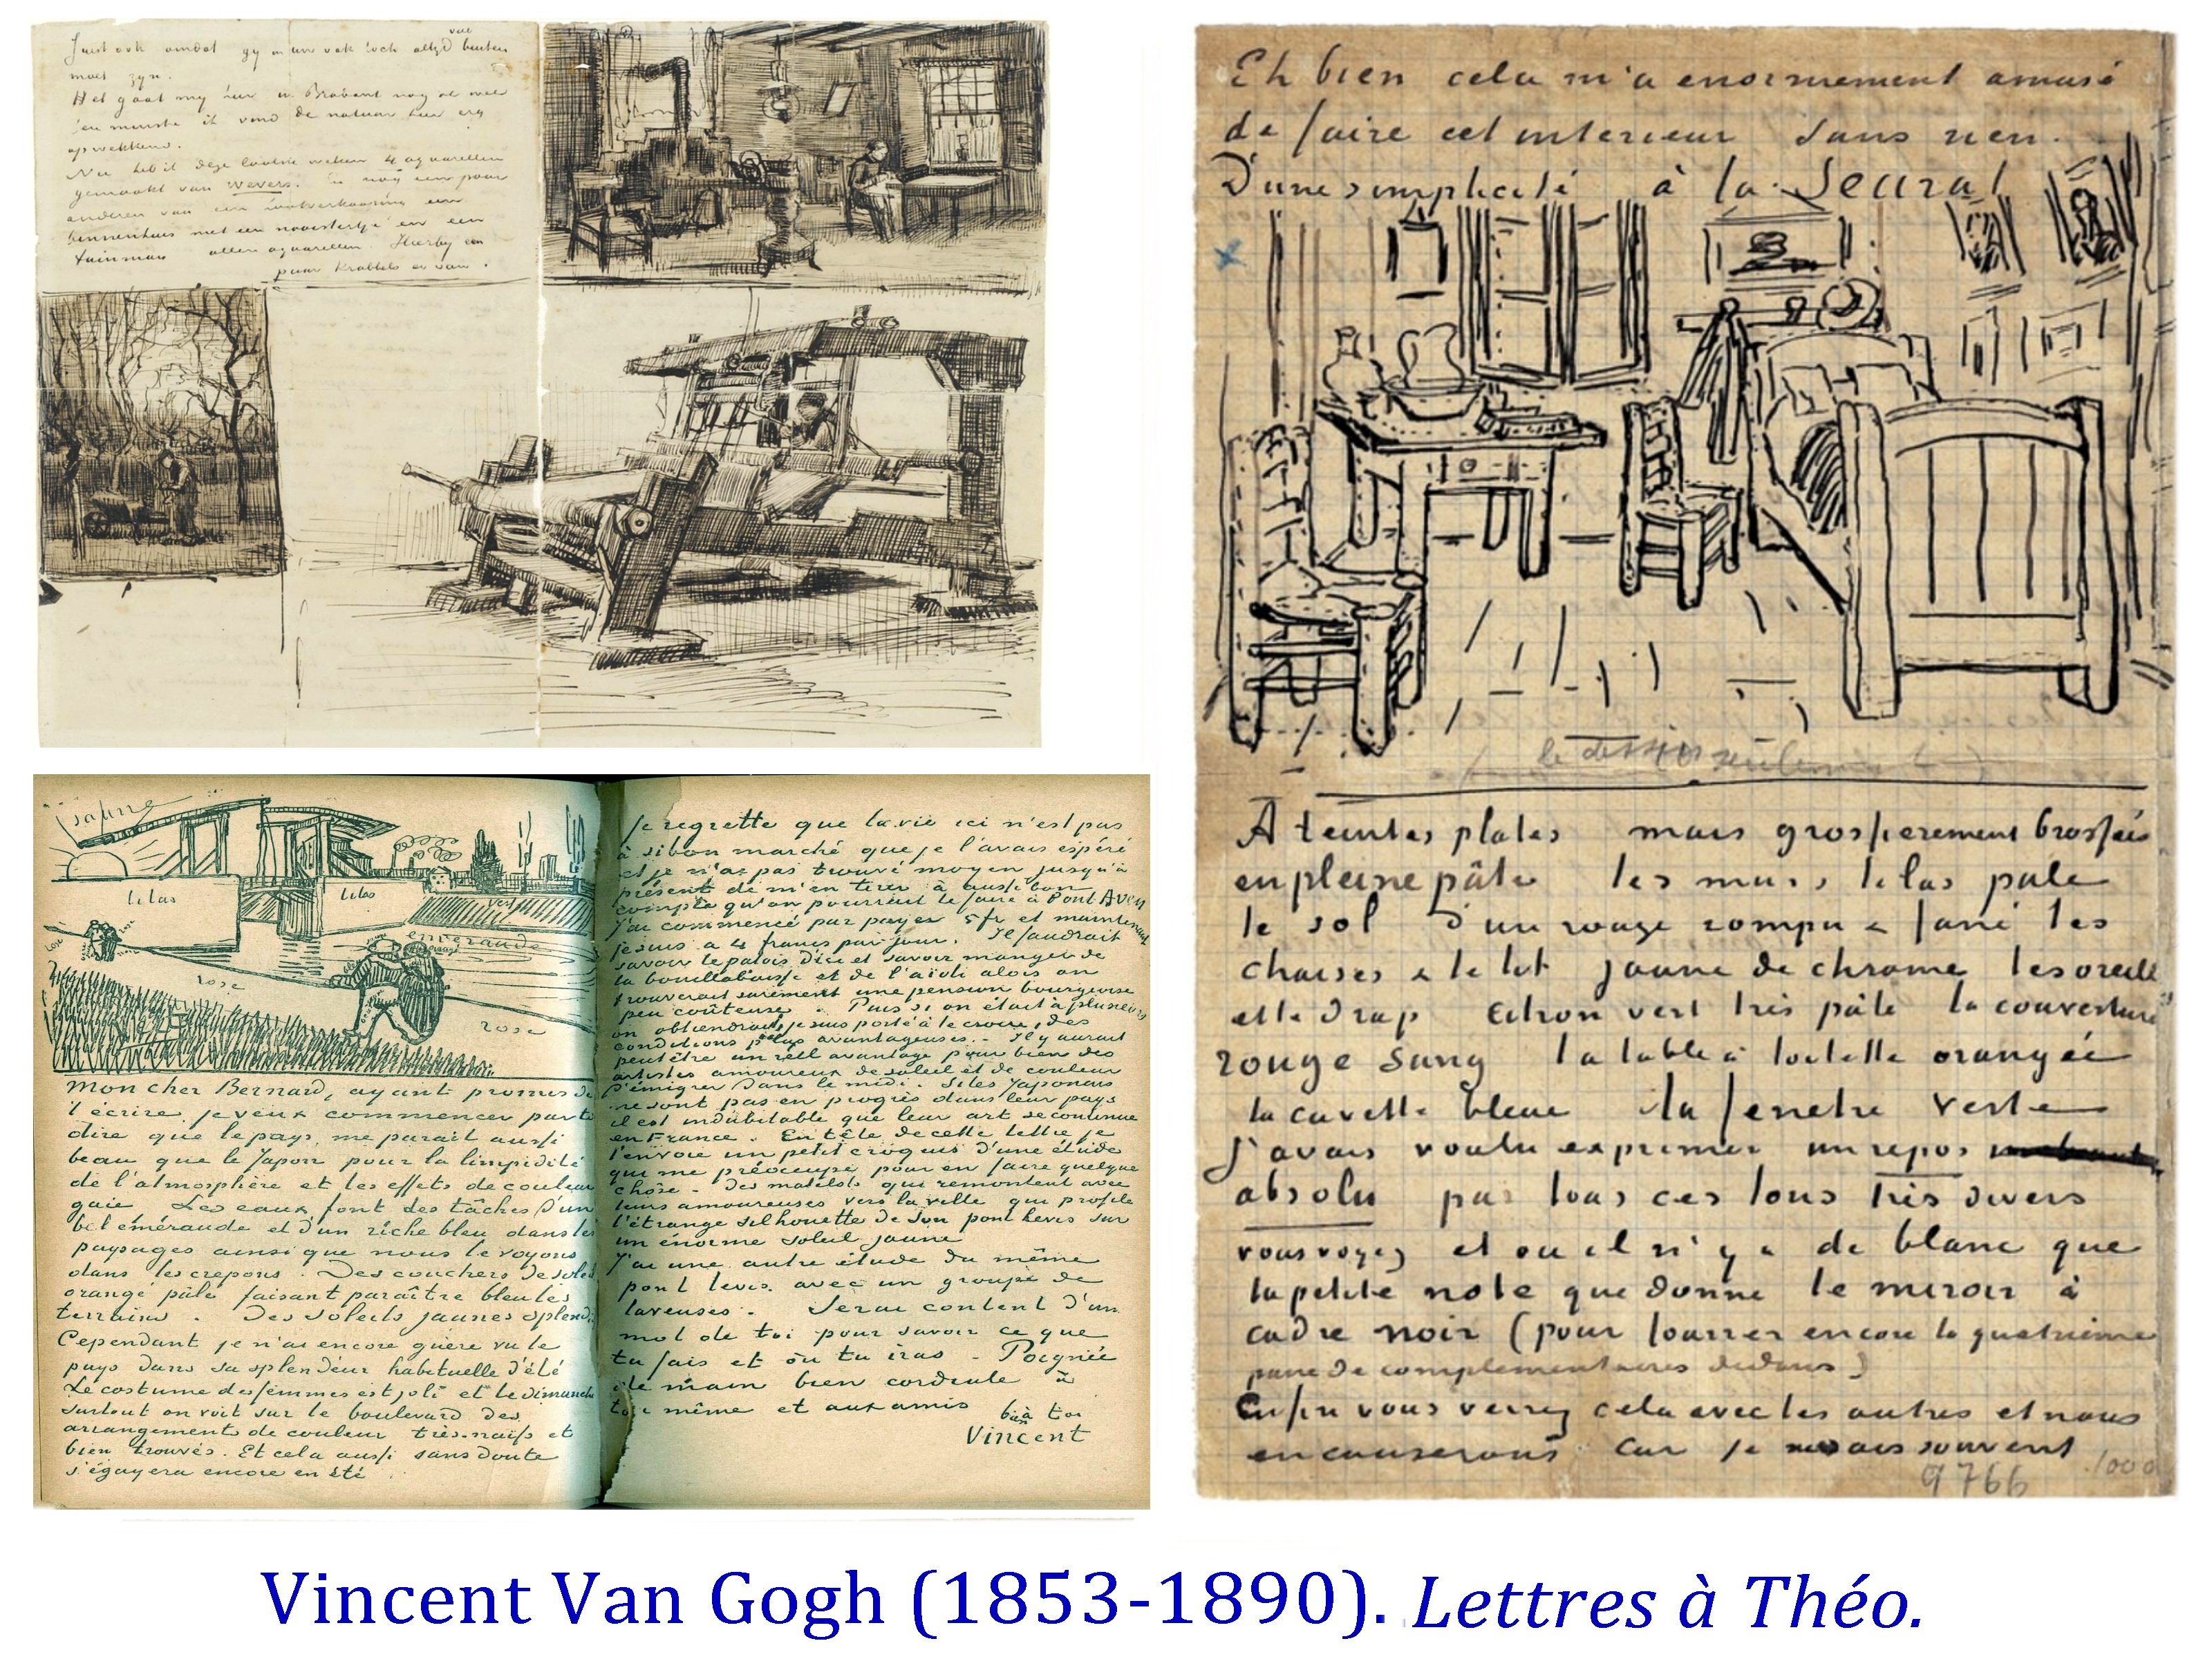 Juist ook omdat gy in uw vak toch altyd veel buiten
moet zyn.
Het gaat my hier in Brabant nog al mee
ten minste ik vind de natuur hier erg
opwekkend.
Nu heb ik deze laatste weken 4 aquarellen
gemaakt van wevers. En nog een paar
anderen van een houtverkooping een
binnenhuis met een naaistertje en een
tuinman allen aquarellen Hierby een
paar krabbels er van.
Eh bien cela m'a enormement amusé
de faire cet interieur sans rien.
D'une simplicité à la Seurat
le dessin seulement
A teintes plates mais grossierement brossées
en pleine pâte les murs lilas pale
le sol d'un rouge rompu & fané les
chaises & le lit jaune de chrome les oreill
et le drap citron vert très pâle la couverture
rouge sang la table à toilette orangée
la cuvette bleue la fenetre verte
J'avais voulu exprimer un repos
absolu par tous ces tons très divers
vous voyez et ou il n'y a de blanc que
la petite note que donne le miroir à
cadre noir (pour fourrer encore la quatrième
paire de complementaires dedans)
Enfin vous verrez cela avec les autres et nous
en causerons car je ne sais souvent
9766 1000
jaune
lilas lilas
vert
emeraude
rose rose
rose
rose
Mon cher Bernard, ayant promis de
t'écrire, je veux commencer par te
dire que le pays me parait aussi
beau que le Japon pour la limpidité
de l'atmosphère et les effets de couleur
gaie Les eaux font des tâches d'un
bel eméraude et d'un riche bleu dans les
paysages ainsi que nous le voyons
dans les crepons. Des couchers de soleil
orangé pâle faisant paraître bleu les
terrains. Des soleils jaunes splendi
Cependant je n'ai encore guère vu le
pays dans sa splendeur habituelle d'été
Le costume des femmes est joli et le dimanche
surtout on voit sur le boulevard des
arrangements de couleur très naïfs et
bien trouvés. Et cela aussi sans doute
s'égayera encore en été
Je regrette que la vie ici n'est pas
à si bon marché que je l'avais espéré
et je n'ai pas trouvé moyen jusqu'à
présent de m'en tirer à aussi bon
compte qu'on pourrait le faire à Pont Aven
J'ai commencé par payer 5 fr et maintenant
je suis à 4 francs par jour. Il faudrait
savoir le patois d'ici et savoir manger de
la bouillabaisse et de l'aïoli alors on
trouverait surement une pension bourgeoise
peu coûteuse. Puis si on était à plusieurs
on obtiendrait, je suis porté à le croire, des
conditions plus avantageuses. Il y aurait
peut être un réell avantage pour bien des
artistes amoureux de soleil et de couleur
d'émigrer dans le midi. Si les Japonais
ne sont pas en progrès dans leur pays
il est indubitable que leur art se continue
en France. En tête de cette lettre je
t'envoie un petit croquis d'une étude
qui me préoccupe pour en faire quelque
chôse - des matelots qui remontent avec
leurs amoureuses vers la ville qui profile
l'étrange silhouette de son pont levis sur
un énorme soleil jaune
J'ai une autre étude du même
pont levis avec un groupe de
laveuses. Serai content d'un
mot de toi pour savoir ce que
tu fais et où tu iras - Poignée
de main bien cordiale à
toi même et aux amis
bien à toi
Vincent
Vincent Van Gogh (1853-1890). Lettres à Théo.